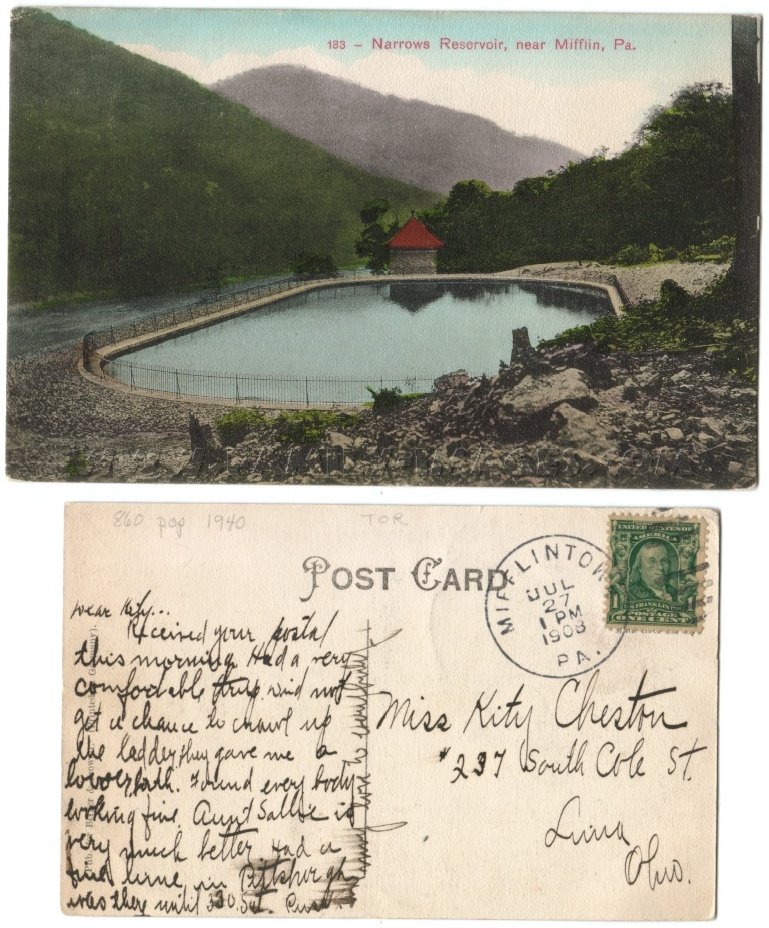 133 - Narrows Reservoir, near Mifflin, Pa.
860 pop 1940
TOR
POST CARD
MIFFLINTOWN
JUL
27
1 PM
1908
PA.
UNITED STATES OF
AMERICA
FRANKLIN
POSTAGE
ONE CENT
Dear Kity...
Received your postal
this morning. Had a very
comfortable trip, did not
get a chance to crawl up
the ladder, they gave me a
lower bath. Found every body
looking fine, Aunt Sallie is
very much better. Had a
fine time in Pittsburgh
was there until 330 Sat.
Miss Kity Cheston
#237 South Cole St.
Lima
Ohio.